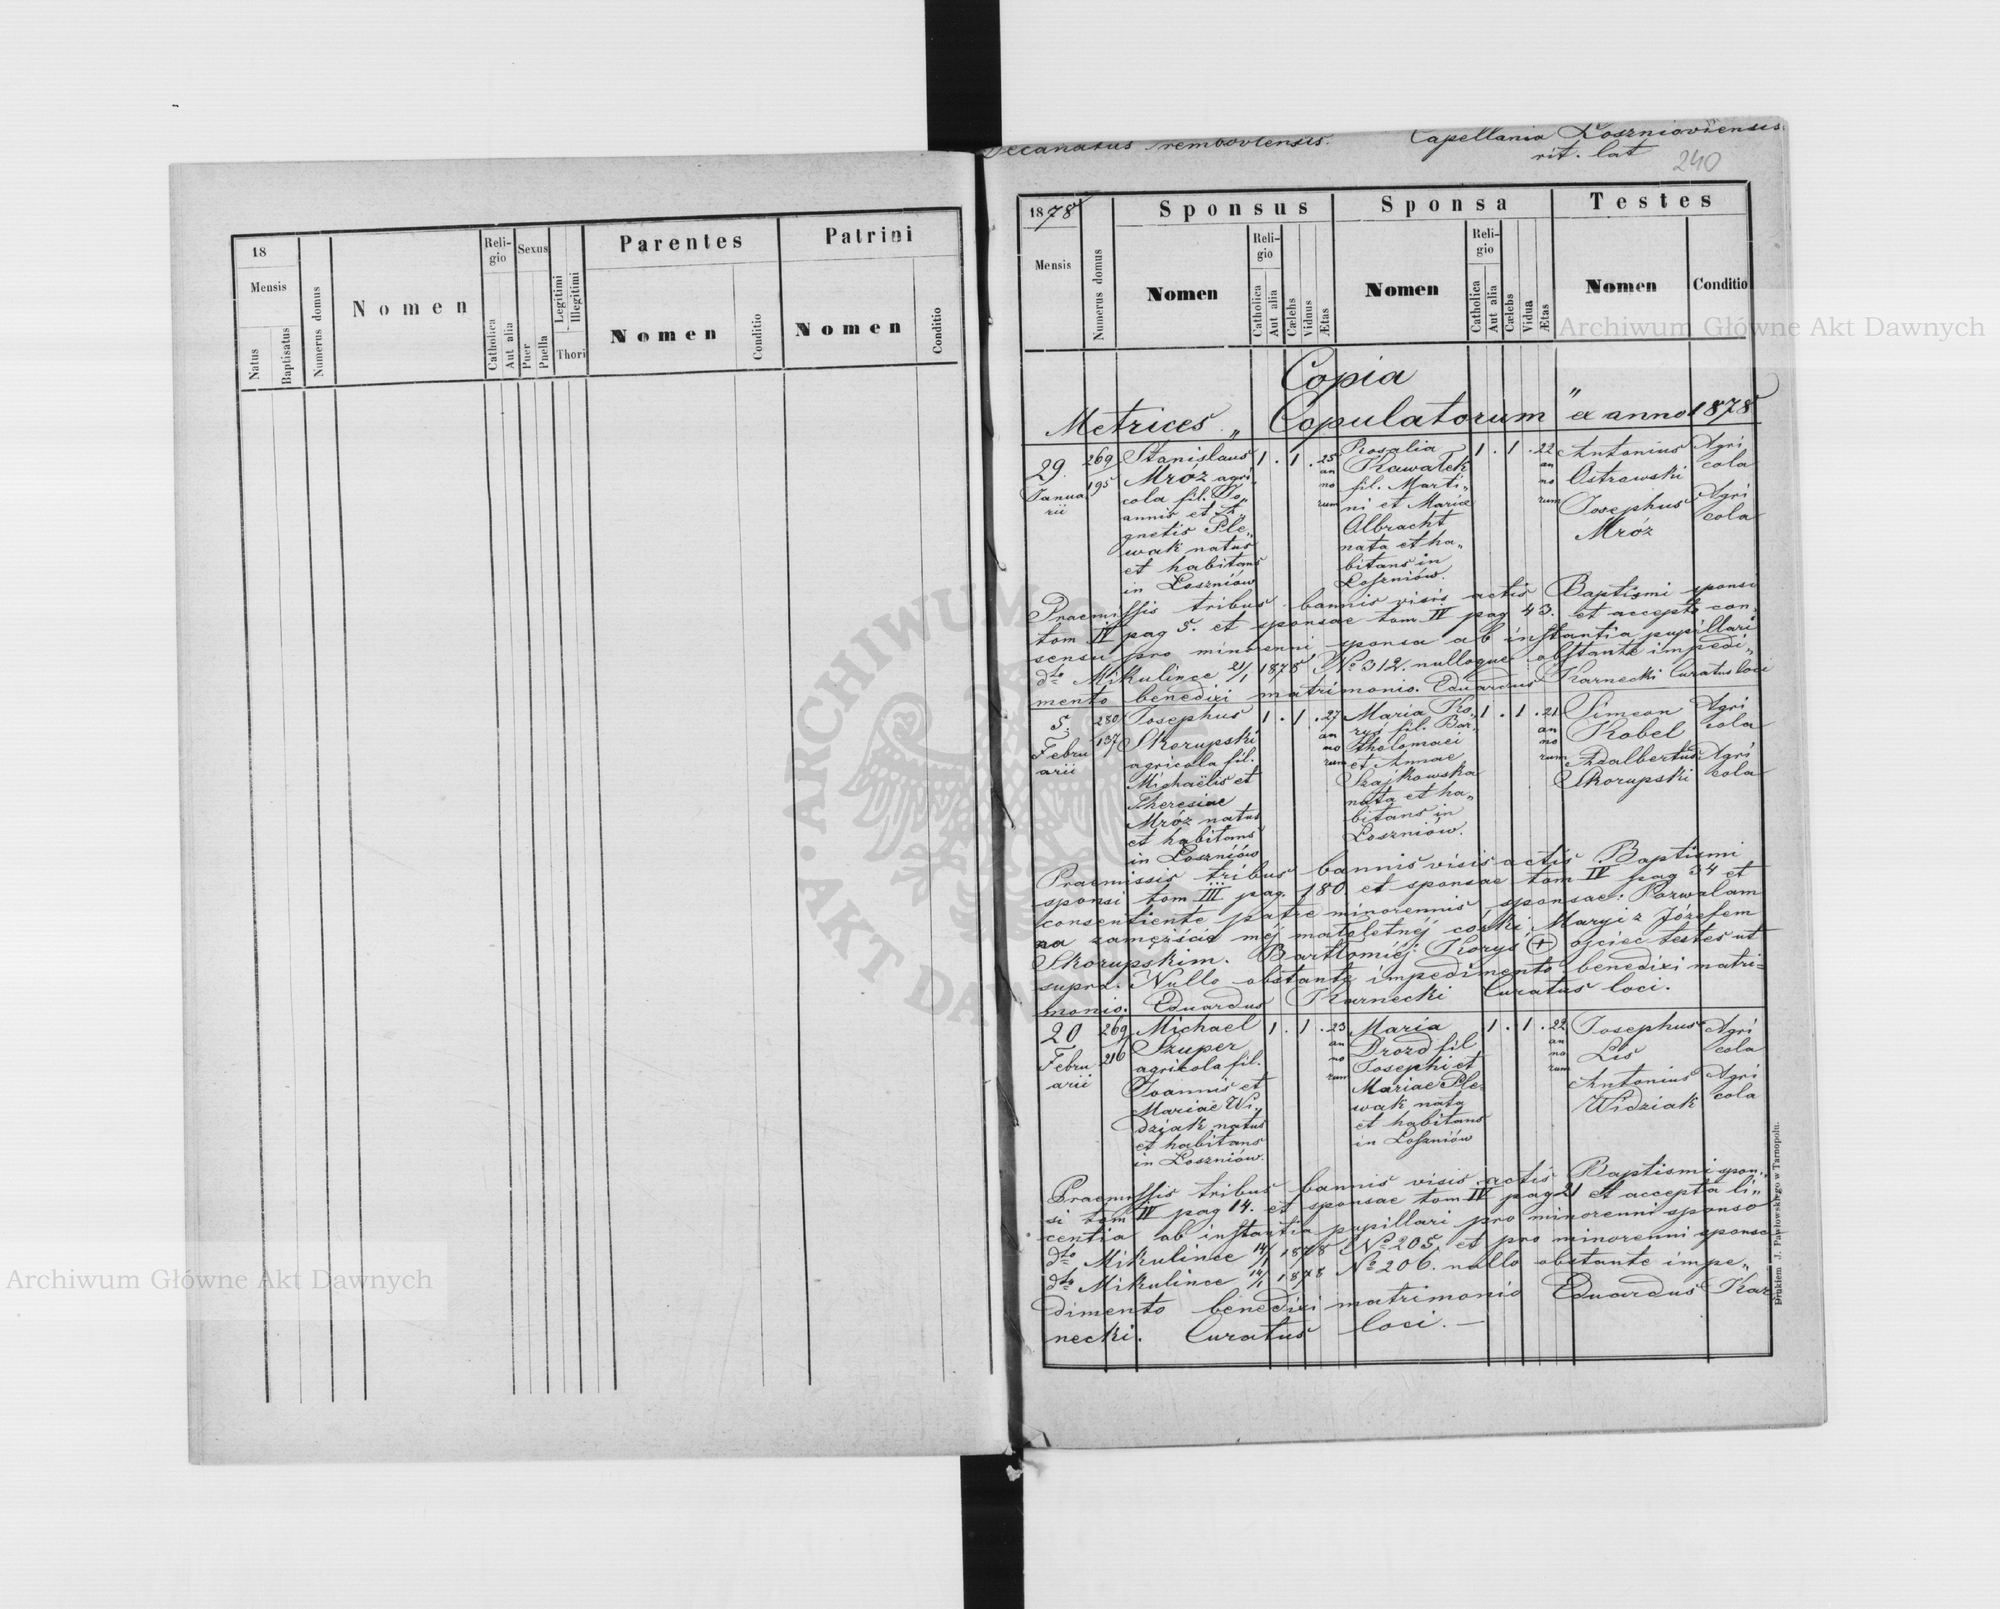 Decanatus Trembovlensis. Capellania Łosznioviensis
rit. lat
240
18
Mensis
Natus
Baptisatus
Numerus domus
Nomen
Reli-
gio
Catholica
Aut alia
Sexus
Puer
Puella
Legitimi
Illegitimi
Thori
Parentes
Nomen
Conditio
Patrini
Nomen
Conditio
1878
Mensis
Numerus domus
Sponsus
Nomen
Reli-
gio
Catholica
Aut alia
Cælebs
Viduus
Ætas
Sponsa
Nomen
Reli-
gio
Catholica
Aut alia
Cælebs
Vidua
Ætas
Testes
Nomen
Conditio
Copia
Metrices „ Copulatorum " ex anno 1878
29.
Janua
rii
269
195
Stanislaus
Mróz agri„
cola fil. Jo„
annis et A„
gnetis Ple„
wak natus
et habitans
in Łoszniów
1 . 1 . 25
an
no
rum
Rosalia
Kawałek
fil. Marti„
ni et Mariæ
Albracht
nata et ha„
bitans in
Łoszniów.
1 . 1 . 22
an
no
rum
Antonius
Ostrowski
Josephus
Mróz
Agri
cola
Agri
cola
Praemissis tribus bannis visis actis Baptismi sponsi
tom IV pag 5. et sponsae tom IV pag 43. et accepto con„
sensu pro minorenni sponsa ab instantia pupillari
dto Mikulince 21/1 1878 No 312. nulloque obstante impedi„
mento benedixi matrimonio. Eduardus Karnecki Curatus loci
5
Febru
arii
280
137
Josephus
Skorupski
agricola fil.
Michaëlis et
Theresiae
Mróz natus
et habitans
in Łoszniów
1 . 1 . 27
an
no
rum
Maria Ko„
ryś fil. Bar„
tholomaei
et Annae
Szajkowska
nata et ha„
bitans in
Łoszniów.
1 . 1 . 21
an
no
rum
Simeon
Kobel
Adalbertus
Skorupski
Agri
cola
Agri
cola
Praemissis tribus bannis visis actis Baptismi
sponsi tom III pag. 180 et sponsae tom IV pag 34 et
consentiente patre minorennis sponsae: Pozwalam
na zamęście méj małoletnéj córki Maryi z Józefem
Skorupskim. Bartłomiéj Koryś + ojciec testes ut
supra. Nullo obstante impedimento benedixi matri„
monio. Eduardus Karnecki Curatus loci.
20
Febru
arii
269
216
Michael
Szuper
agricola fil.
Joannis et
Mariae Wi„
dziak natus
et habitans
in Łoszniów.
1 . 1 . 23
an
no
rum
Maria
Drozd fil
Josephi et
Mariae Ple„
wak nata
et habitans
in Łoszniów
1 . 1 . 22
an
no
rum
Josephus
Lis
Antonius
Widziak
Agri
cola
Agri
cola
Praemissis tribus bannis visis actis Baptismi spon„
si tom IV pag 14. et sponsae tom IV pag 21 et accepta li„
centia ab instantia pupillari pro minorenni sponso
dto Mikulince 14/1 1878 No 205. et pro minorenni sponsa
dto Mikulince 14/1 1878 No 206. nullo obstante impe„
dimento benedixi matrimonio Eduardus Kar
necki. Curatus loci. —
Drukiem J. Pawłowskiego w Tarnopolu.
Archiwum Główne Akt Dawnych
Archiwum Główne Akt Dawnych
ARCHIWUM
AKT DAWNYCH